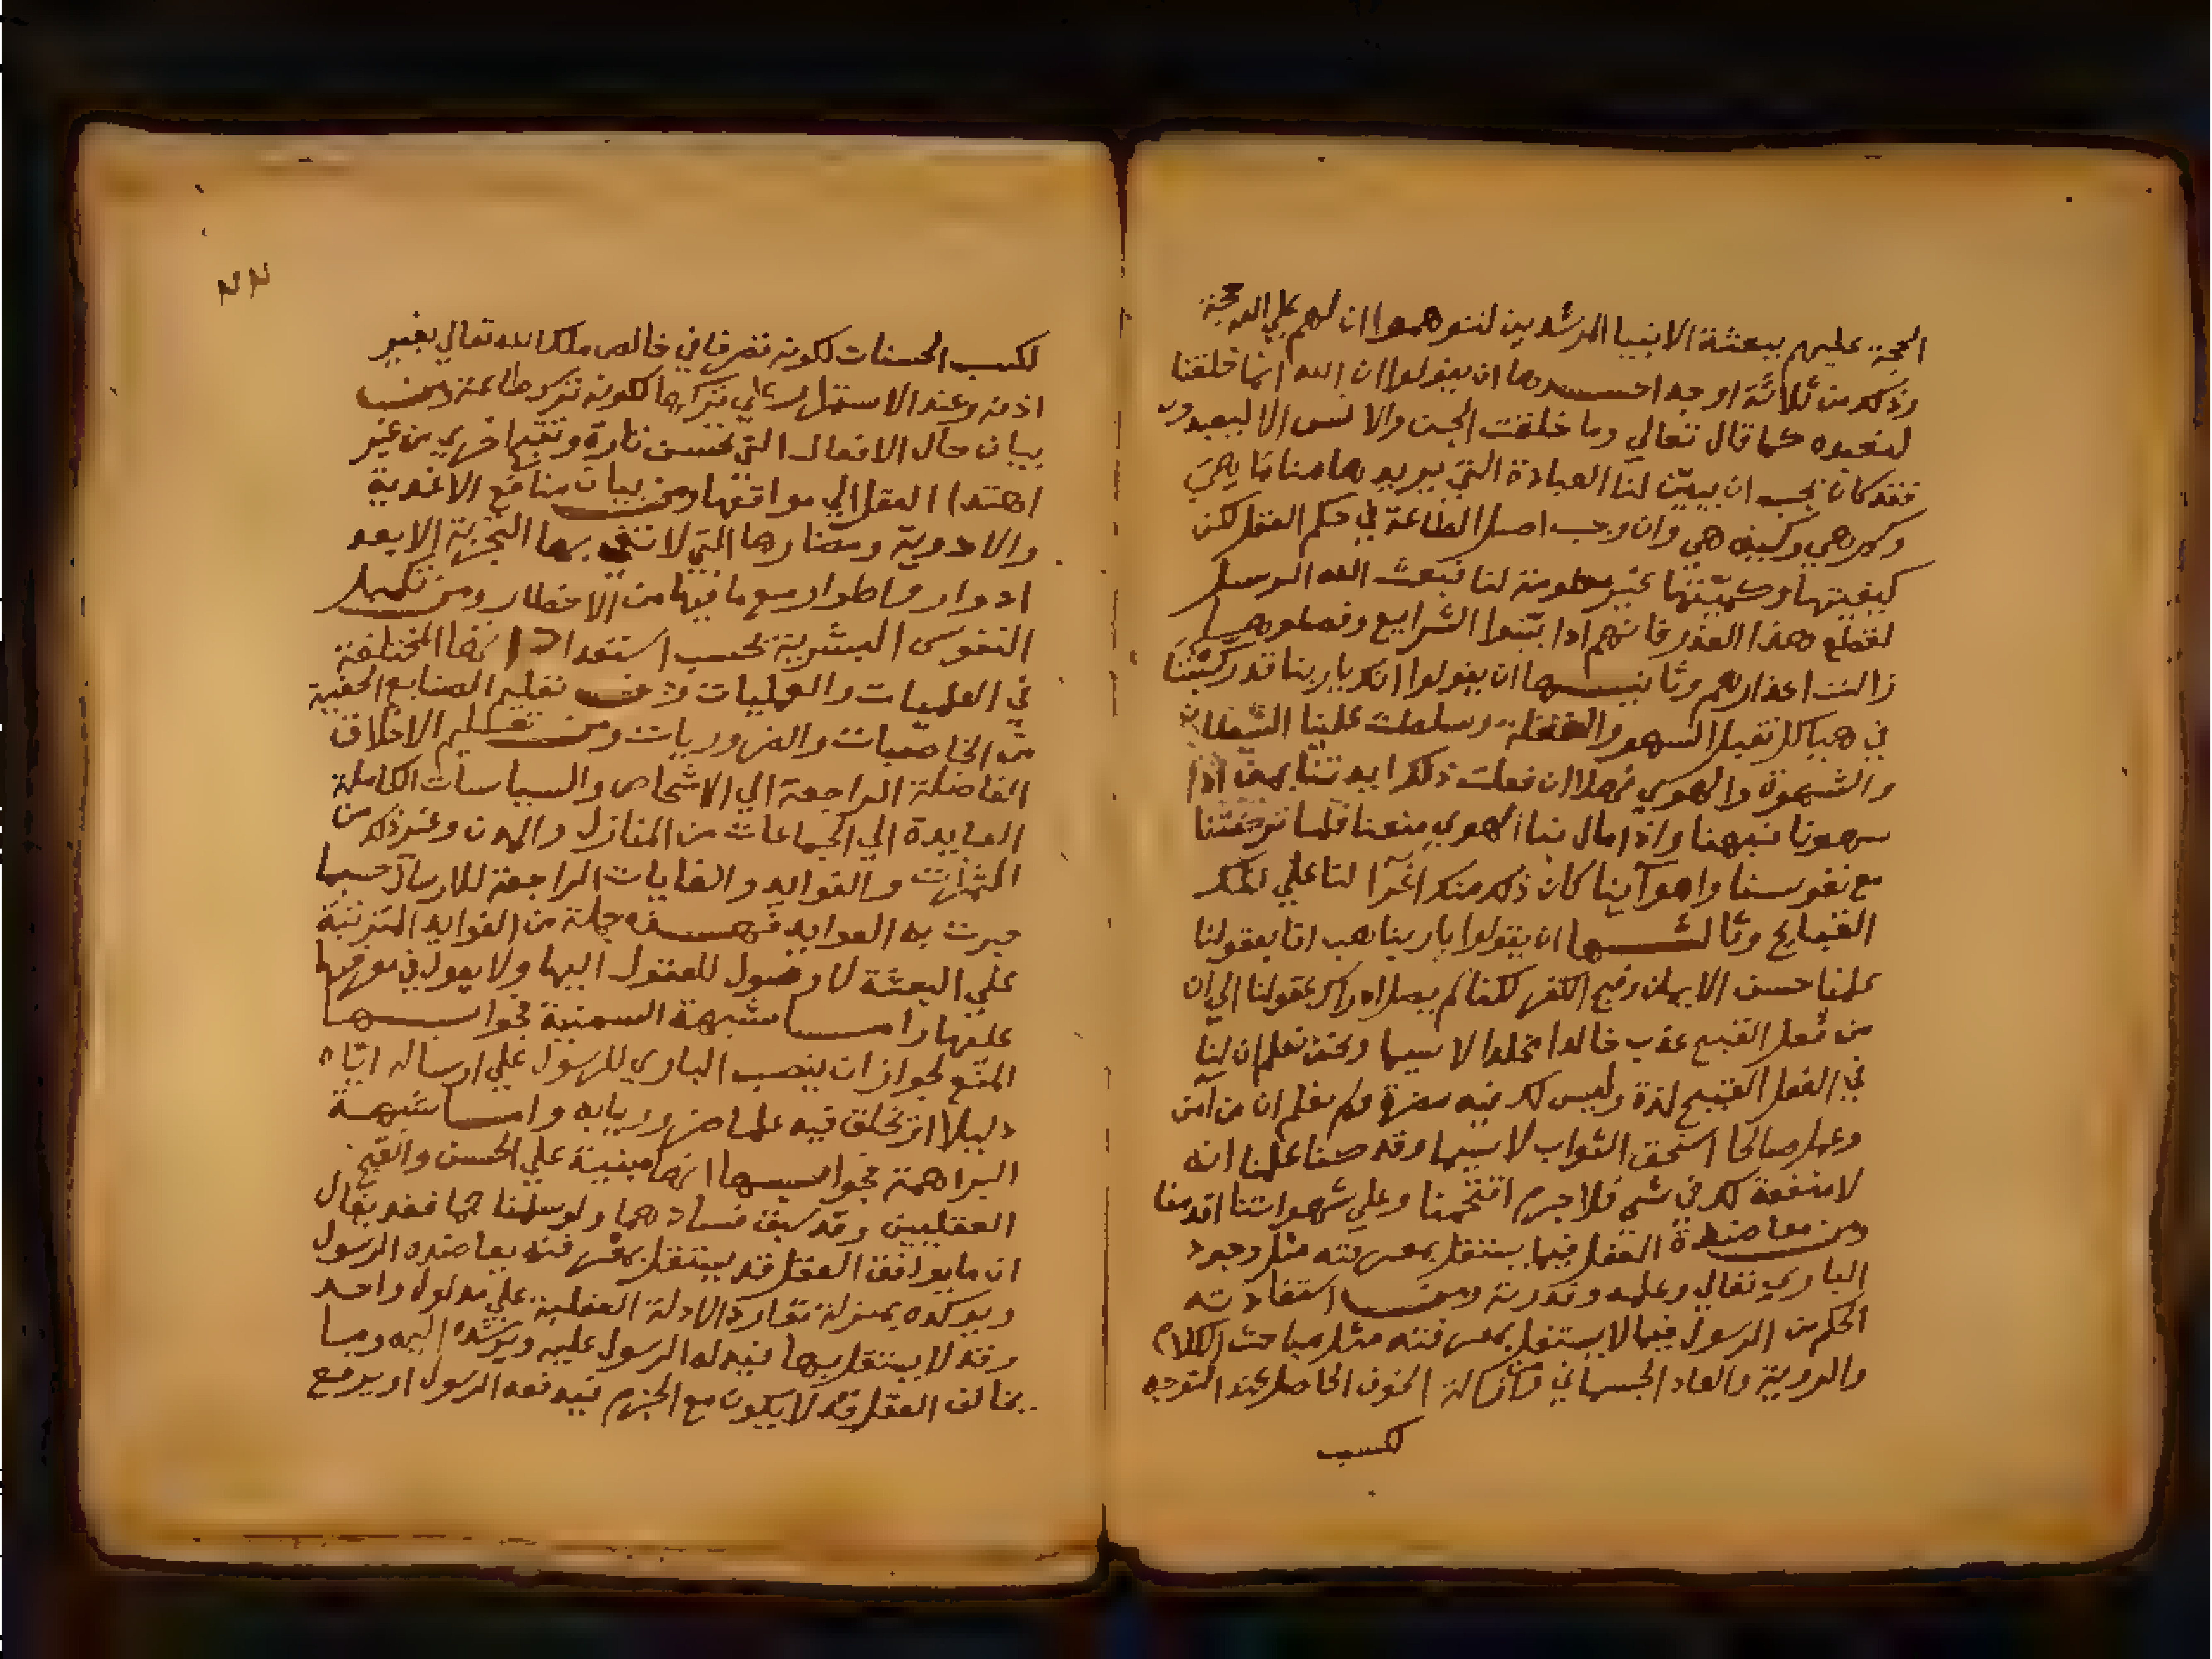 الحجة عليهم ببعثة الانبيا المرشدين لتوهموا ان لهم علي الله حجة
وذكر من ثلاثة اوجه احدها ان يقولوا ان الله انما خلقنا
لنعبده كما قال تعالي وما خلقت الجن والانس الا ليعبدون
فقد كان يجب ان يبين لنا العبادة التي يريدها منا ما هي
وكم هي وكيف هي وان وجب اصل الطاعة في حكم العقل لكن
كيفيتها وكميتها غير معلومة لنا فبعث الله الرسل
لقطع هذا العذر فانهم اذا بينوا الشرايع وفصلوها
زالت اعذارهم وثانيها ان يقولوا انك يا ربنا قد ركبتنا
في هياكل تقبل السهو والغفلة وسلطت علينا الشيطان
والشهوة والهوي فهلا ان فعلت ذلك ايدتنا بمن اذا
سهونا نبهنا واذا مال بنا الهوي منعنا فلما تركتنا
مع نفوسنا واهوآينا كان ذلك منك اغرآ لنا علي تلك
القبايح وثالثها ان يقولوا يا ربنا هب انا بعقولنا
علمنا حسن الايمان وقبح الكفر لكنا لم يصل ادراك عقولنا الي ان
من فعل القبيح عذب خالدا مخلدا لا سيما ونحن نعلم ان لنا
في الفعل القبيح لذة وليس لك فيه مضرة ولم نعلم ان من آمن
وعمل صالحا استحق الثواب لا سيما وقد كنا علمنا انه
لا منفعة لك في شي فلا جرم اقتحمنا وعلي شهواتنا اقدمنا
ومن معاضدة العقل فيما يستقل بمعرفته مثل وجود
الباري تعالي وعلمه وقدرته ومن استفادته
الحكم من الرسول فيما لا يستقل بمعرفته مثل مباحث الكلام
والروية والمعاد الجسماني وازالة الخوف الحاصل عند التوجه
لكسب
٢٢
لكسب الحسنات لكونه تصرفا في خالص ملك الله تعالي بغير
اذنه وعند الاستقلال علي تركها لكونه ترك طاعة ومن
بيان حال الافعال التي تحسن تارة وتقبح اخري من غير
اهتدا العقل الي مواقعها ومن بيان منافع الاغذية
والادوية ومضارها التي لا تفي بها التجربة الا بعد
ادوار واطوار مع ما فيها من الاخطار ومن تكميل
النفوس البشرية بحسب استعداداتها المختلفة
في العلميات والعمليات ومن تعليم الصنايع الخفية
من الحاجيات والضروريات ومن تعليم الاخلاق
الفاضلة الراجعة الي الاشخاص والسياسات الكاملة
العايدة الي الجماعات من المنازل والمدن وغير ذلك من
الثمرات والفوايد والغايات الراجعة للارسال حسبما
جرت به العوايد فهذه جملة من الفوايد المترتبة
علي البعثة لا وصول للعقول اليها ولا يعول في معرفتها
عليها واما شبهة السمنية فجوابها
المنع لجواز ان ينصب الباري للرسول علي ارساله اياه
دليلا او يخلق فيه علما ضروريا به واما شبهة
البراهمة فجوابها انها مبنية علي الحسن والقبح
العقليين وقد سبق فسادهما ولو سلمناهما فقد يقال
ان ما يوافق العقل قد يستقل بمعرفته يعاضده الرسول
ويوكده بمنزلة توارد الادلة العقلية علي مدلول واحد
وقد لا يستقل بها فيدله الرسول عليه ويرشده اليه وما
يخالف العقل قد لا يكون مع الجزم فيدفعه الرسول او يرفع